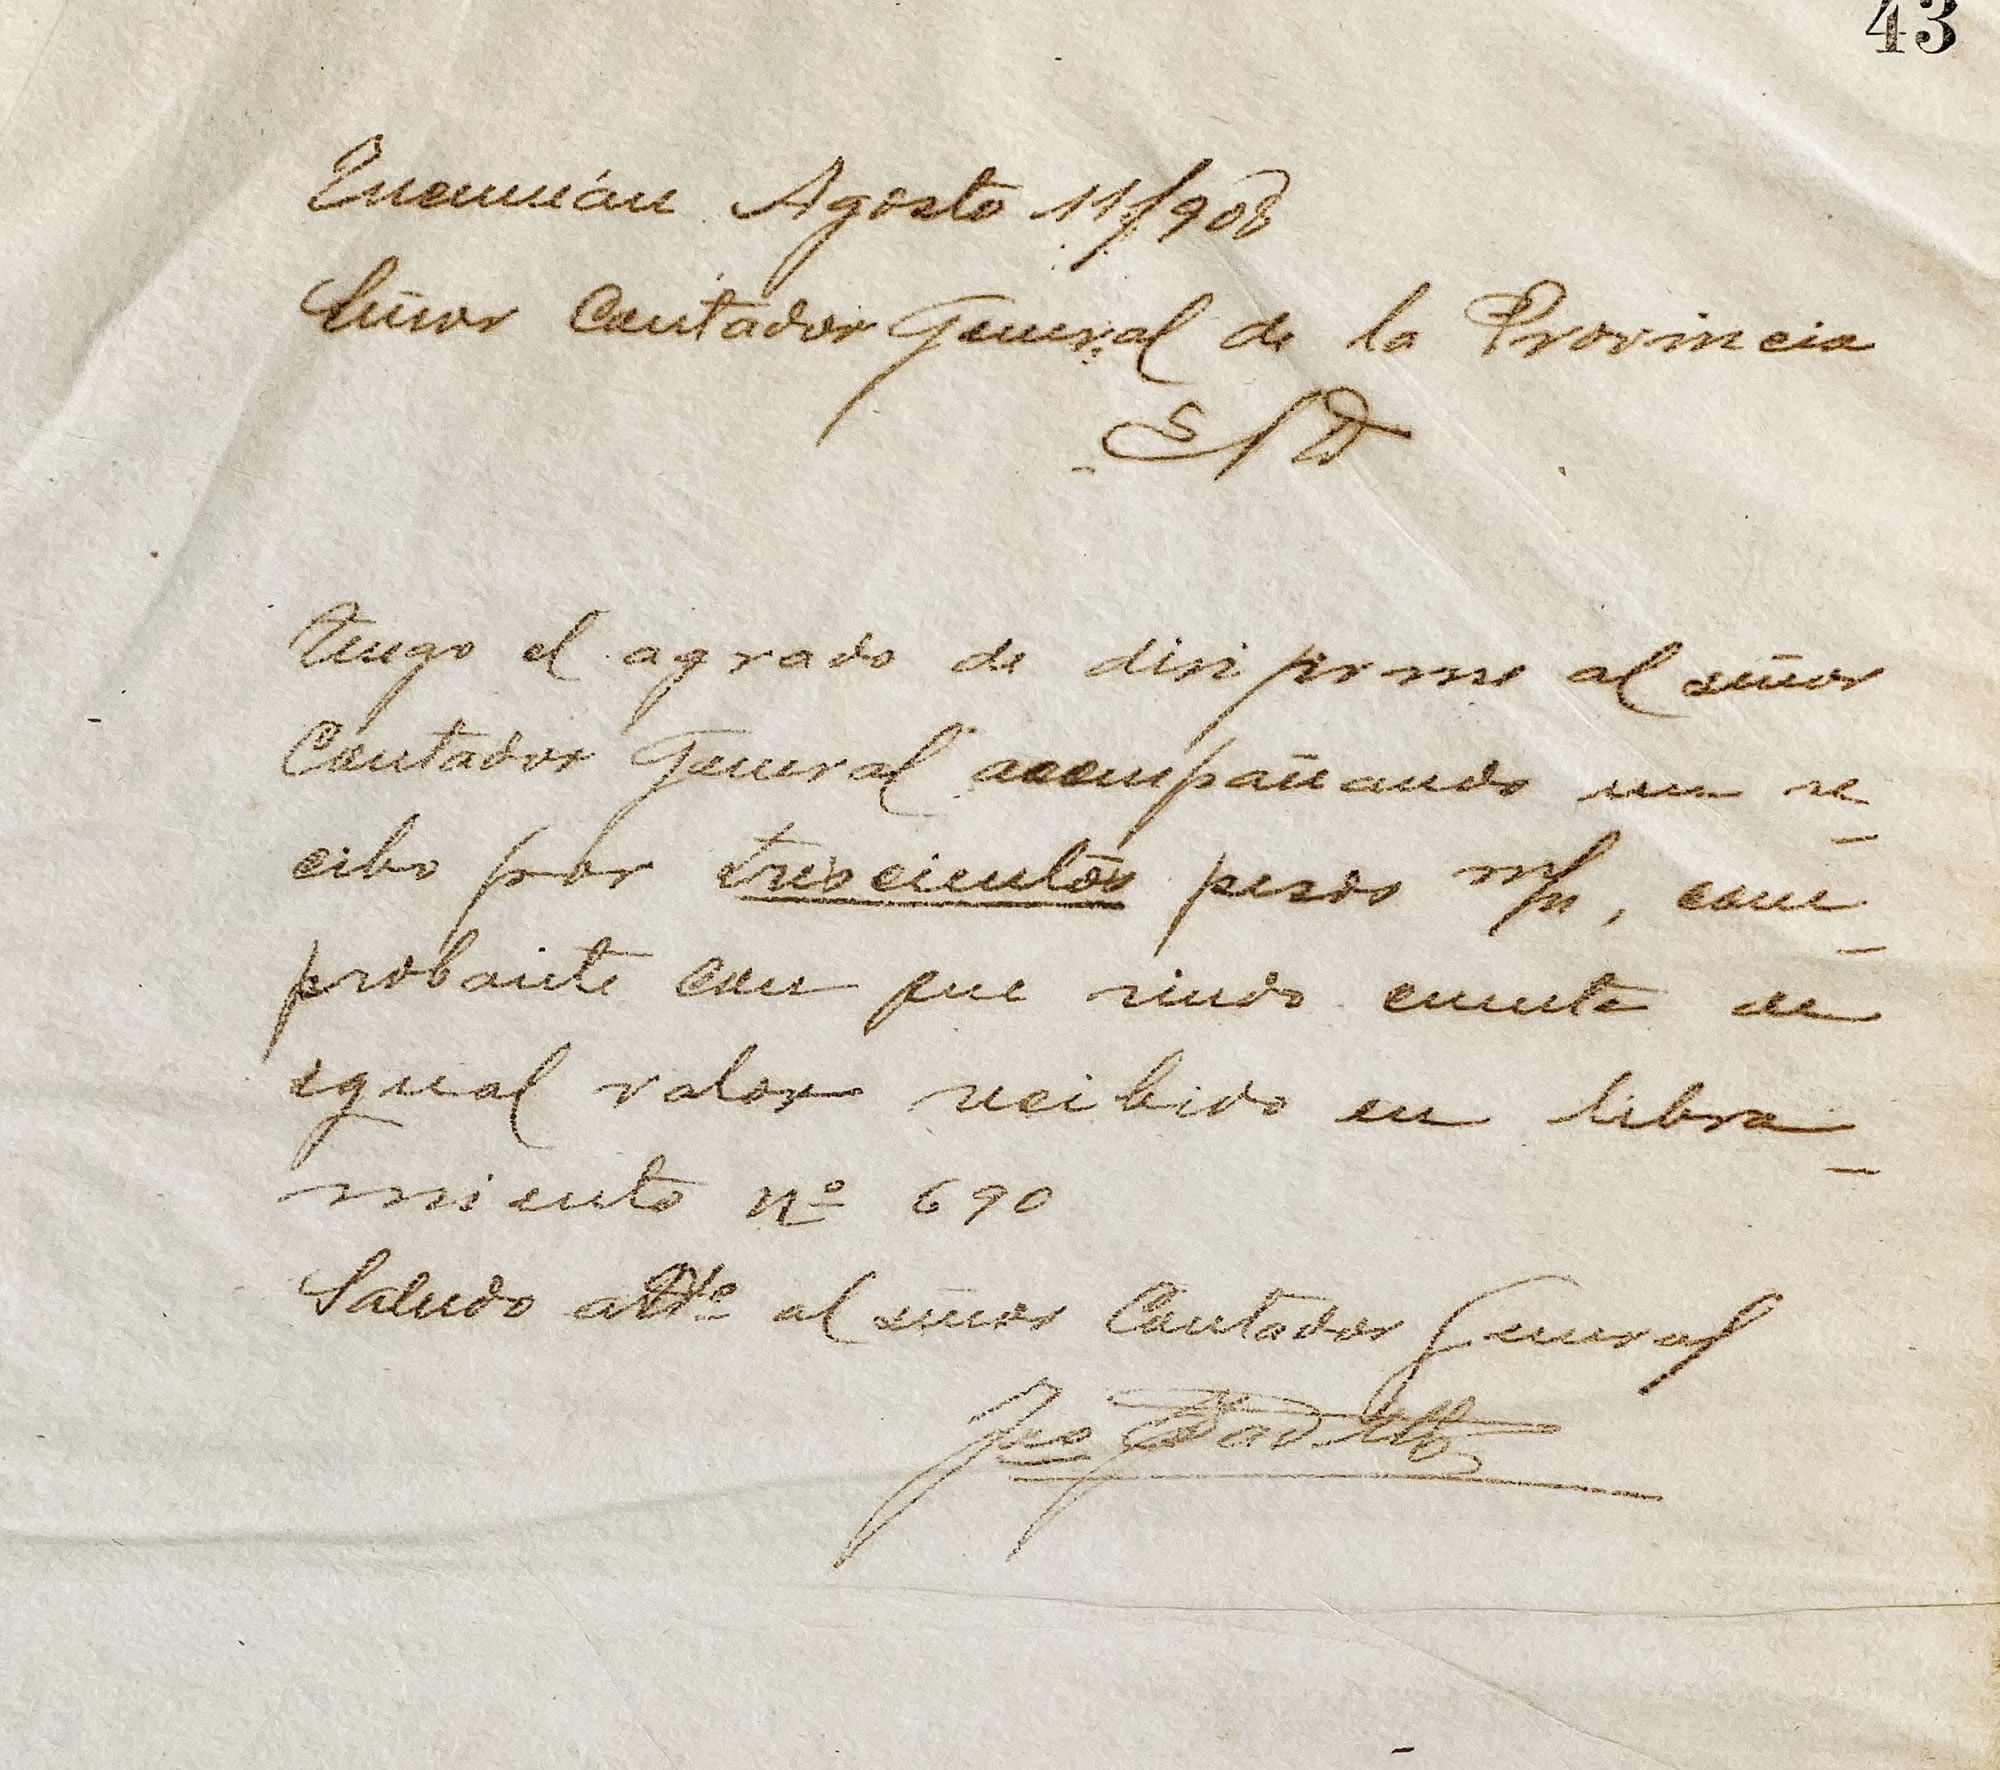 43
Tucumán Agosto 11/908
Señor Contador General de la Provincia
S/D
Tengo el agrado de dirigirme al señor
Contador General acompañando un re
cibo por trescientos pesos m/n, com
probante con que rindo cuenta de
igual valor recibido en libra
miento Nº 690
Saludo atte al señor Contador General
Jno Padilla